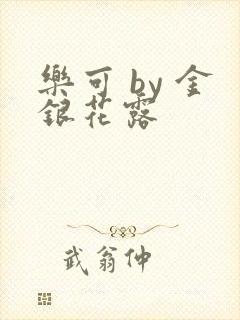 樂可 by 金
銀花露
武翁仲